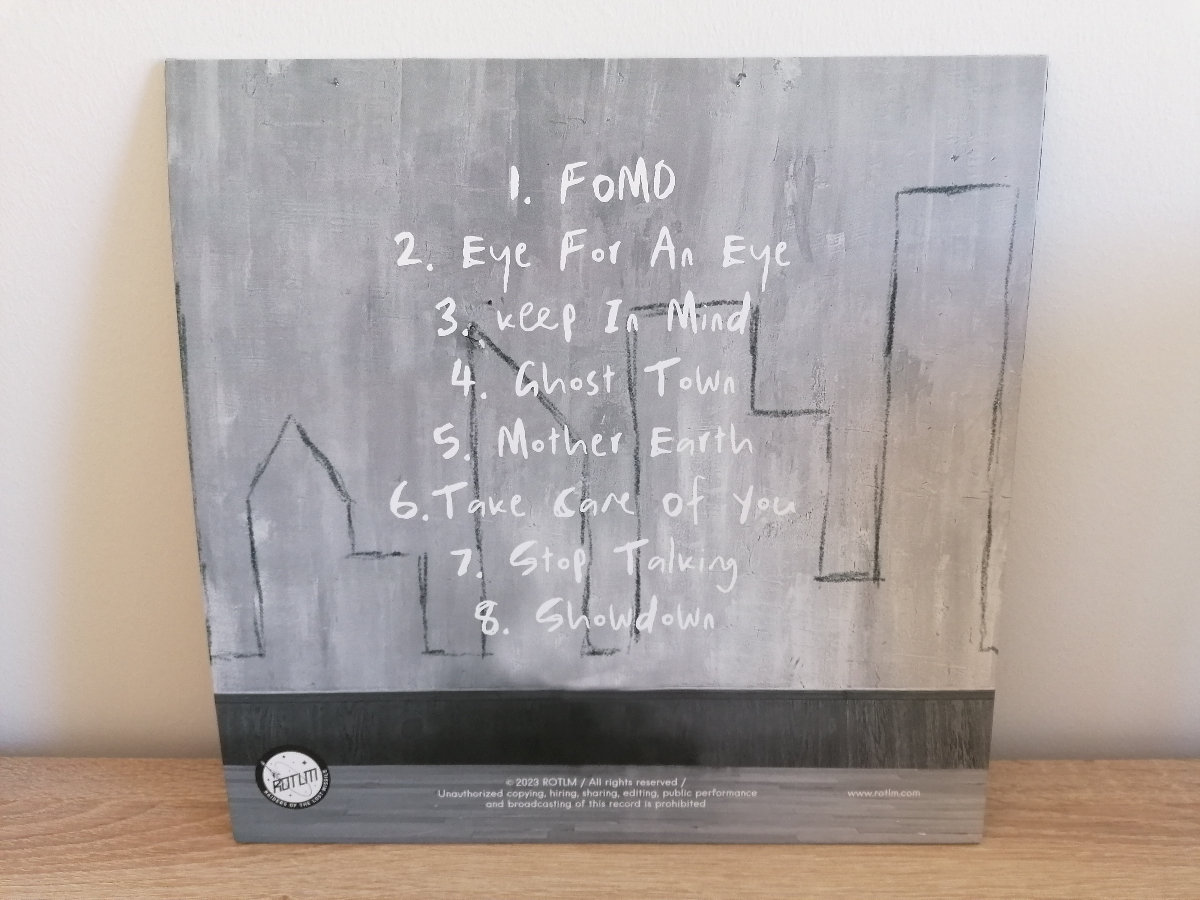 1. FOMO
2. Eye For An Eye
3. Keep In Mind
4. Ghost Town
5. Mother Earth
6. Take Care of You
7. Stop Talking
8. Showdown
ROTLM
RAIDERS OF THE LOST MUSIC
© 2023 ROTLM / All rights reserved /
Unauthorized copying, hiring, sharing, editing, public performance
and broadcasting of this record is prohibited
www.rotlm.com